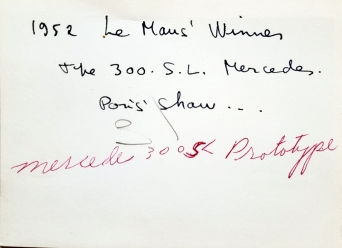 1952 Le Mans' Winner
the 300.S.L. Mercedes.
Paris' Show...
mercede 300SL Prototype